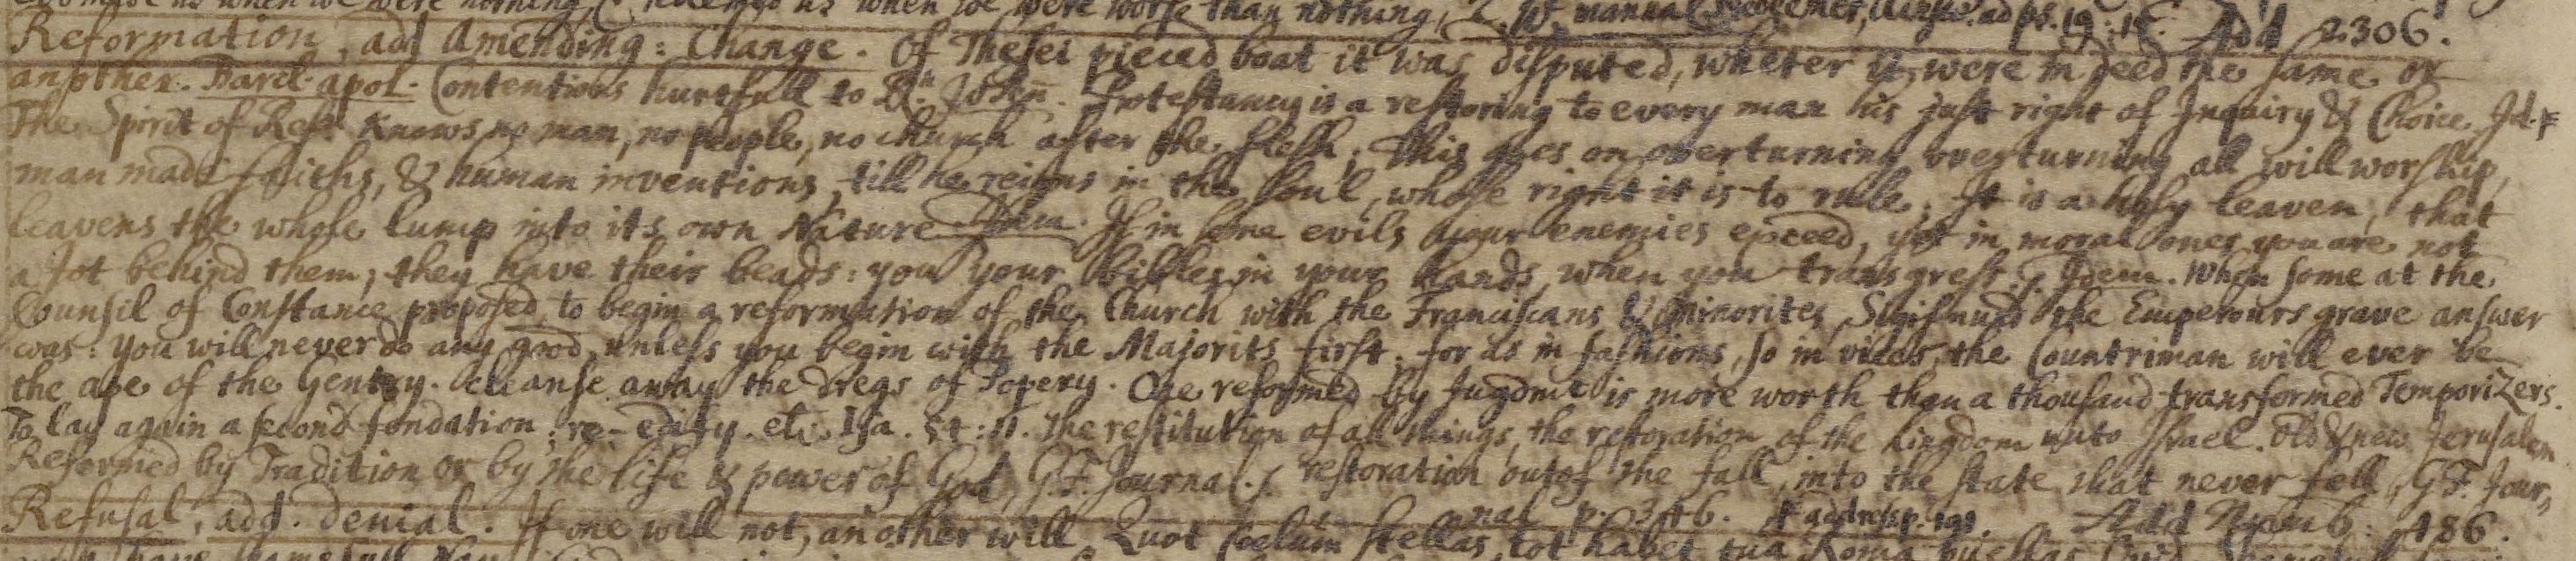 when we were nothing, & redeemed us when we were worse than nothing, ad ps. 19:15. Add 2306.
Reformation, add Amending: Change. Of Thesei pieced boat it was disputed, wheter it were in deed the same or
another. Barcl. apol. Contentions hurtfull to Rn. Idem. Protestancy is a restoring to every man his just right of Inquiry & Choice Id. #
The Spirit of Ref. knows no man, no people, no church after the flesh; This goes on overturning, overturning all will worship,
man made faiths, & human inventions, till he reigns in the soul, whose right it is to rule; It is a holy leaven, that
leavens the whole lump into its own Nature Idem. If in some evils your enemies exceed, yet in moral ones you are not
a Jot behind them; they have their beads: you your bibles in your hands, when you transgress. Idem. When some at the
Counsil of Constance proposed to begin a reformation of the Church with the Franciscans & Minorites, Sigismund the Emperours grave answer
was: you will never do any good, unless you begin with the Majorits first, for as in fashions, so in vices, the Countriman will ever be
the ape of the Gentry. Cleanse away the dregs of Popery. One reformed by Jugdmt is more worth than a thousand transformed Temporizers.
To lay again a second fondation; re-edify. etc. Isa. 54:11. The restitution of all things, the restoration of the kingdom unto Israel. Old & new Jerusalem
Reformed by Tradition or by the life & power of God, G.F. Journal. restoration out of the fall, into the state that never fell, G.F. Jour,,
nal p. 346. # address p. 191. Add Numb: 486.
Refusal, add. denial. If one will not, an other will. Quot coelum stellas, tot habet tua Roma puellas